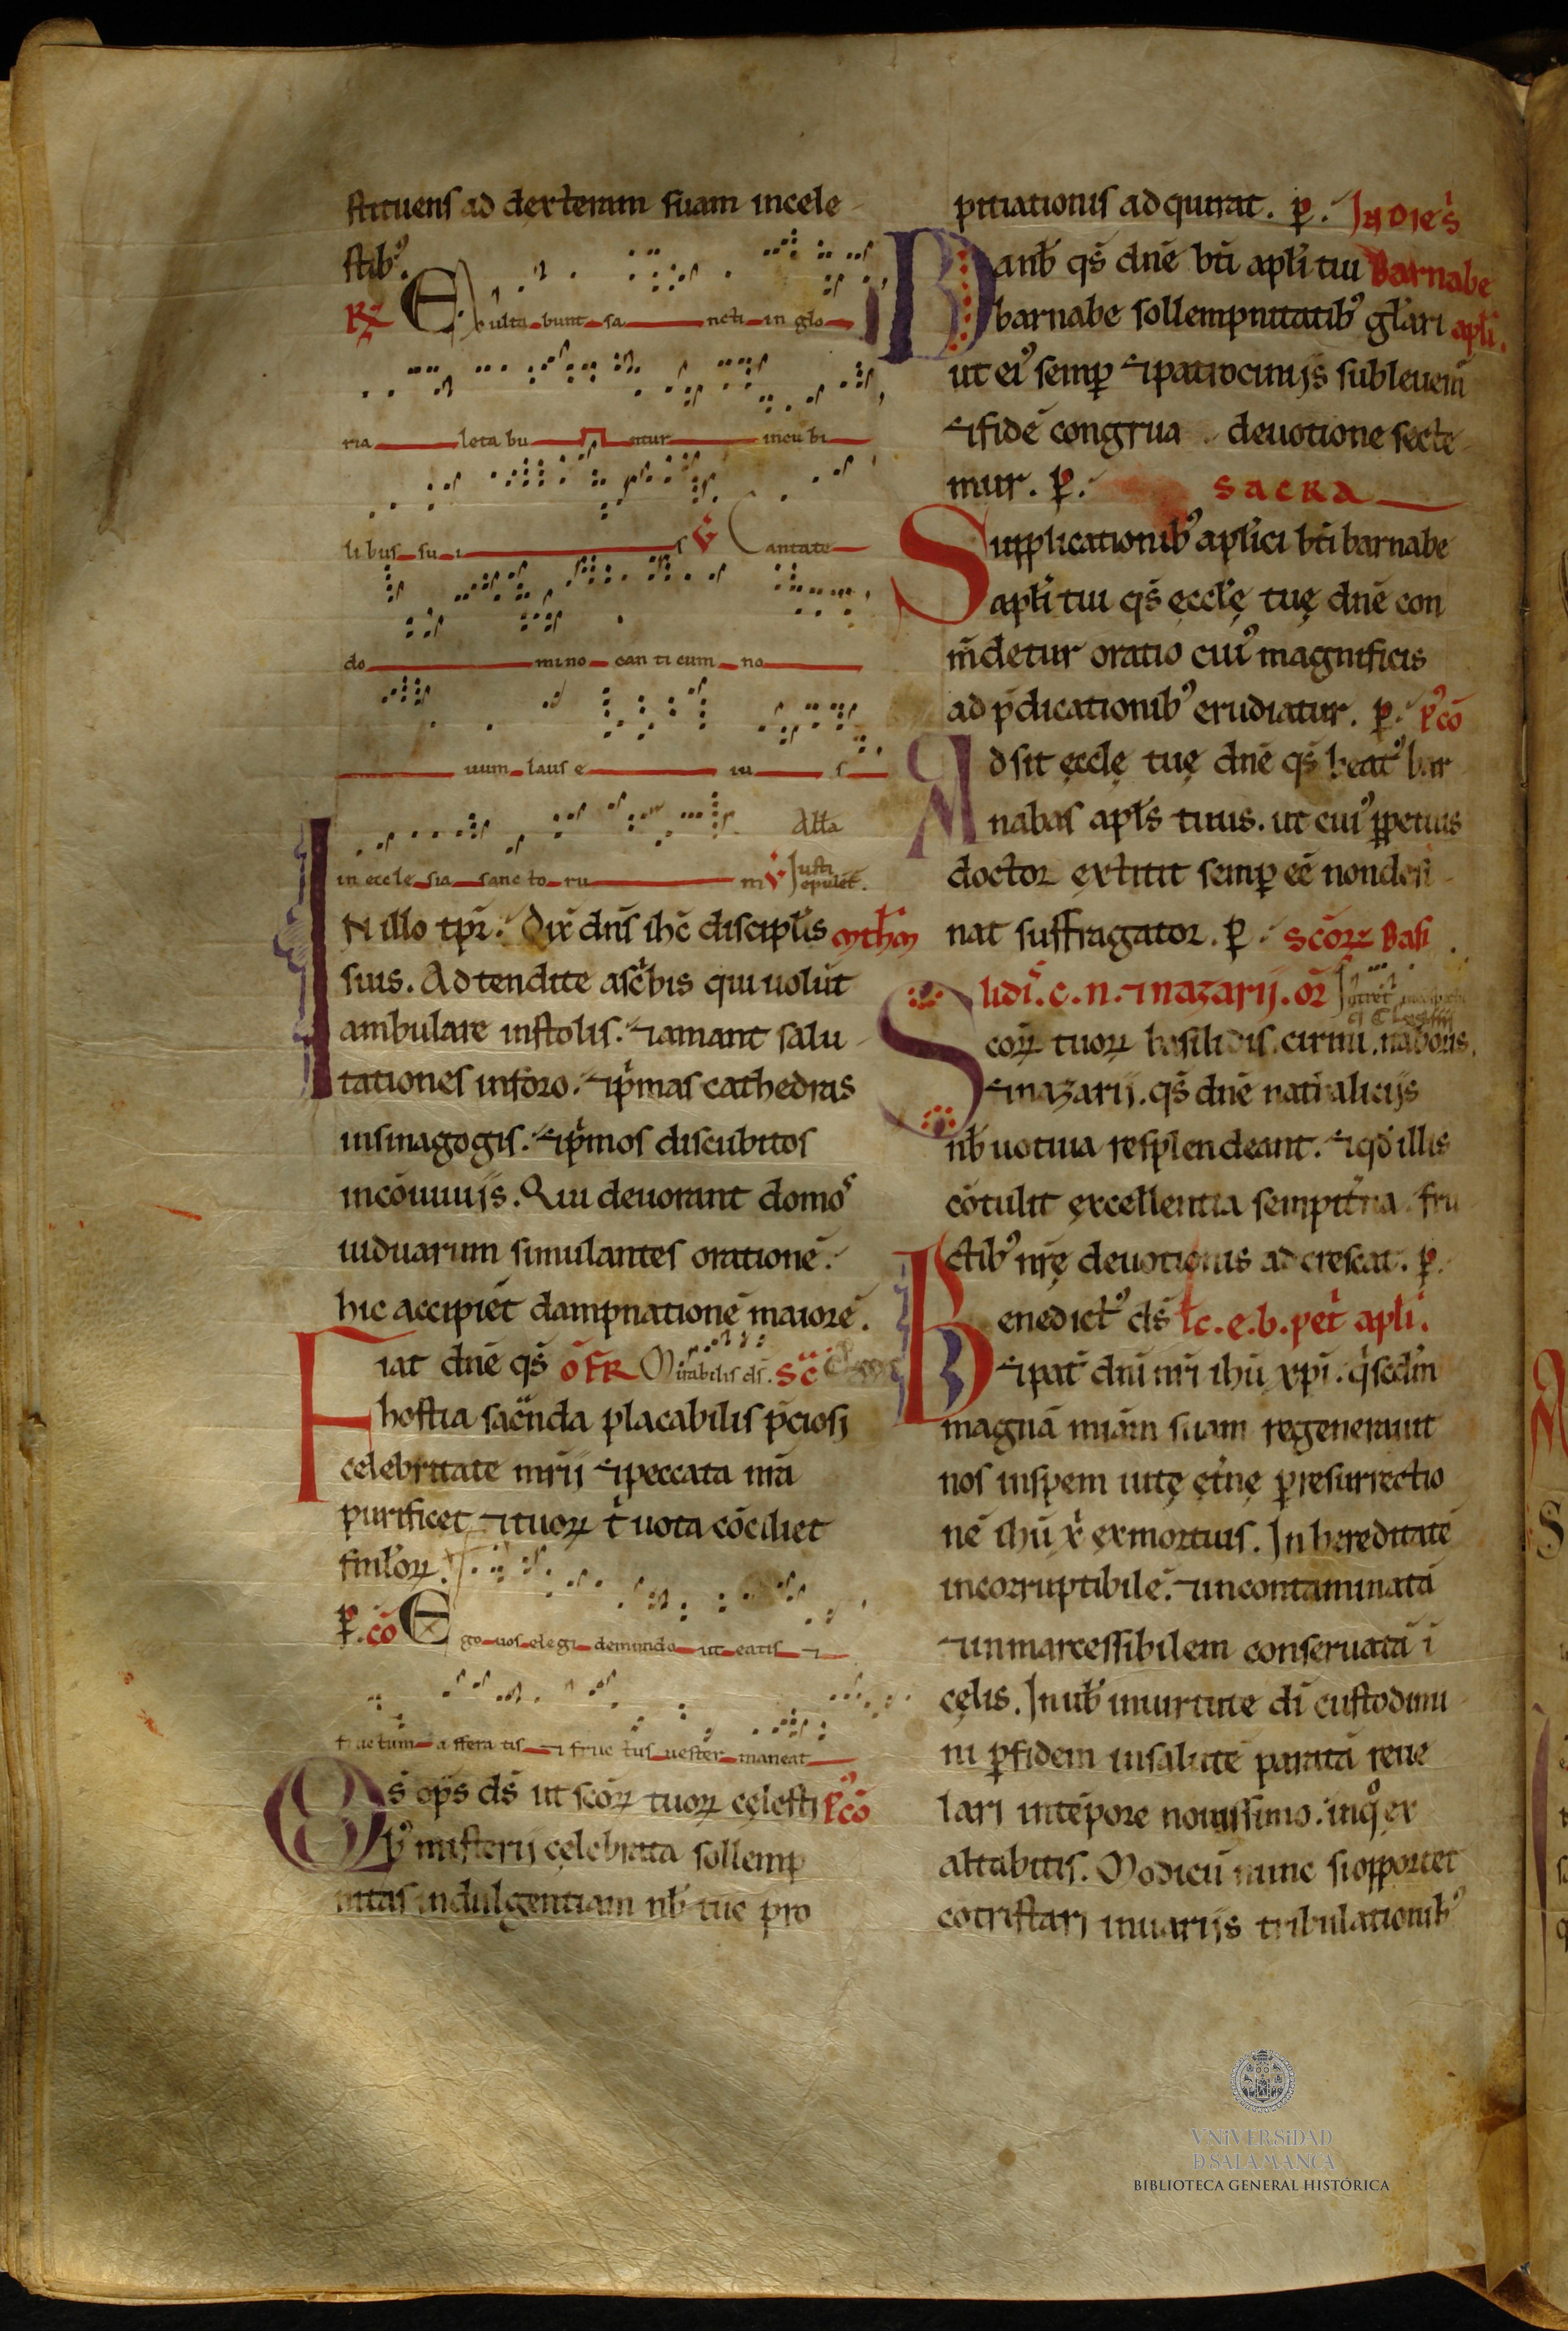 stituens ad dexteram suam in cele
stibꝰ.
R̃ Exulta bunt sa ncti in glo
ria leta bu ntur in cu bi
li bus su i s V̄ Cantate
do mino can ti cum no
uum laus e iu s
in eccle sia sanc to ru m V̄ Alła Justi epulēt.
IN illo tp̄r. Dix̄ dn̄s ih̄c discipłis
suis. Adtendite a sc̄bis qui uolūt
ambulare in stolis. ⁊ amant salu
tationes in foro. ⁊ p̄mas cathedras
in sinagogis. ⁊ p̄mos discubitos
in cōuiuiis. Qui deuorant domos
uiduarum simulantes orationē.
hic accipiēt dampnationē maiorē.
Fiat dn̄e qs̄ ōFR Mirabilis ds̄. Sc̄
hostia sac̄nda placabilis p̄ciosi
celebritate mr̄ii ⁊ peccata nr̄a
purificet ⁊ tuoꝝ t̄ uota cōciliet
fmłoꝝ.
P. cō Ego uos elegi de mundo ut eatis ⁊
fructum afferatis ⁊ fructus uester maneat
Qs̄ op̄s ds̄ ut sc̄oꝝ tuoꝝ cęlesti Pꝰcō
bꝰ misterii cęlebrata sollemp
nitas indulgentiam nb̄ tue pro
pitiationis adquirat. p. In die s̄
Da nb̄ qs̄ dn̄e bt̄i apłi tui Barnabe
barnabe sollempnitatibꝰ głari apłi.
ut eiꝰ semꝑ ⁊ patrociniis subleuem̄
⁊ fidē congrua deuotione secte
mur. p. SACRA
Supplicationibꝰ apłici bt̄i barnabe
apłi tui qs̄ ęccłę tuę dn̄e con
m̄detur oratio cuiꝰ magnificis
ad p̄dicationibꝰ erudiatur. p. Pꝰcō
Adsit ęccłę tuę dn̄e qs̄ beatꝰ bar
nabas apłs tuus. ut cuiꝰ ꝑpetuus
doctor extitit semꝑ eē non desi
nat suffragator. p. Scōꝝ Basi
lidis. c. n. ⁊ nazarii. or̄
Scoꝝ tuoꝝ basilidis. cirini. naboris.
⁊ nazarii. qs̄ dn̄e natalicis
nb̄ uotiua resplendeant. ⁊ qd̄ illis
cōtulit excellentia sempit̄na. fru
ctibꝰ nr̄ę deuotionis adcrescat. p.
Benedictꝰ ds̄ łc. e. b. pet̄ apłi.
⁊ pat̄ dn̄i nr̄i ih̄u xp̄i. q̄ sed̄m
magnā mīam suam regenerauit
nos in spem uitę ęt̄nę ꝑ resurrectio
nē ih̄u x̄ ex mortuis. In hereditatē
incorruptibilē. ⁊ incontaminatā
⁊ inmarcessibilem conseruatā ī
cęlis. In uob̄ in uirtute dī custodimi
ni ꝑ fidem in salutē paratā reue
lari in tēpore nouissimo. in qꝰ ex
altabitis. Modicū nunc si opportet
cōtristari in uariis tribulationibꝰ
VNiVERSiDAD
D SALAMANCA
BIBLIOTECA GENERAL HISTÓRICA